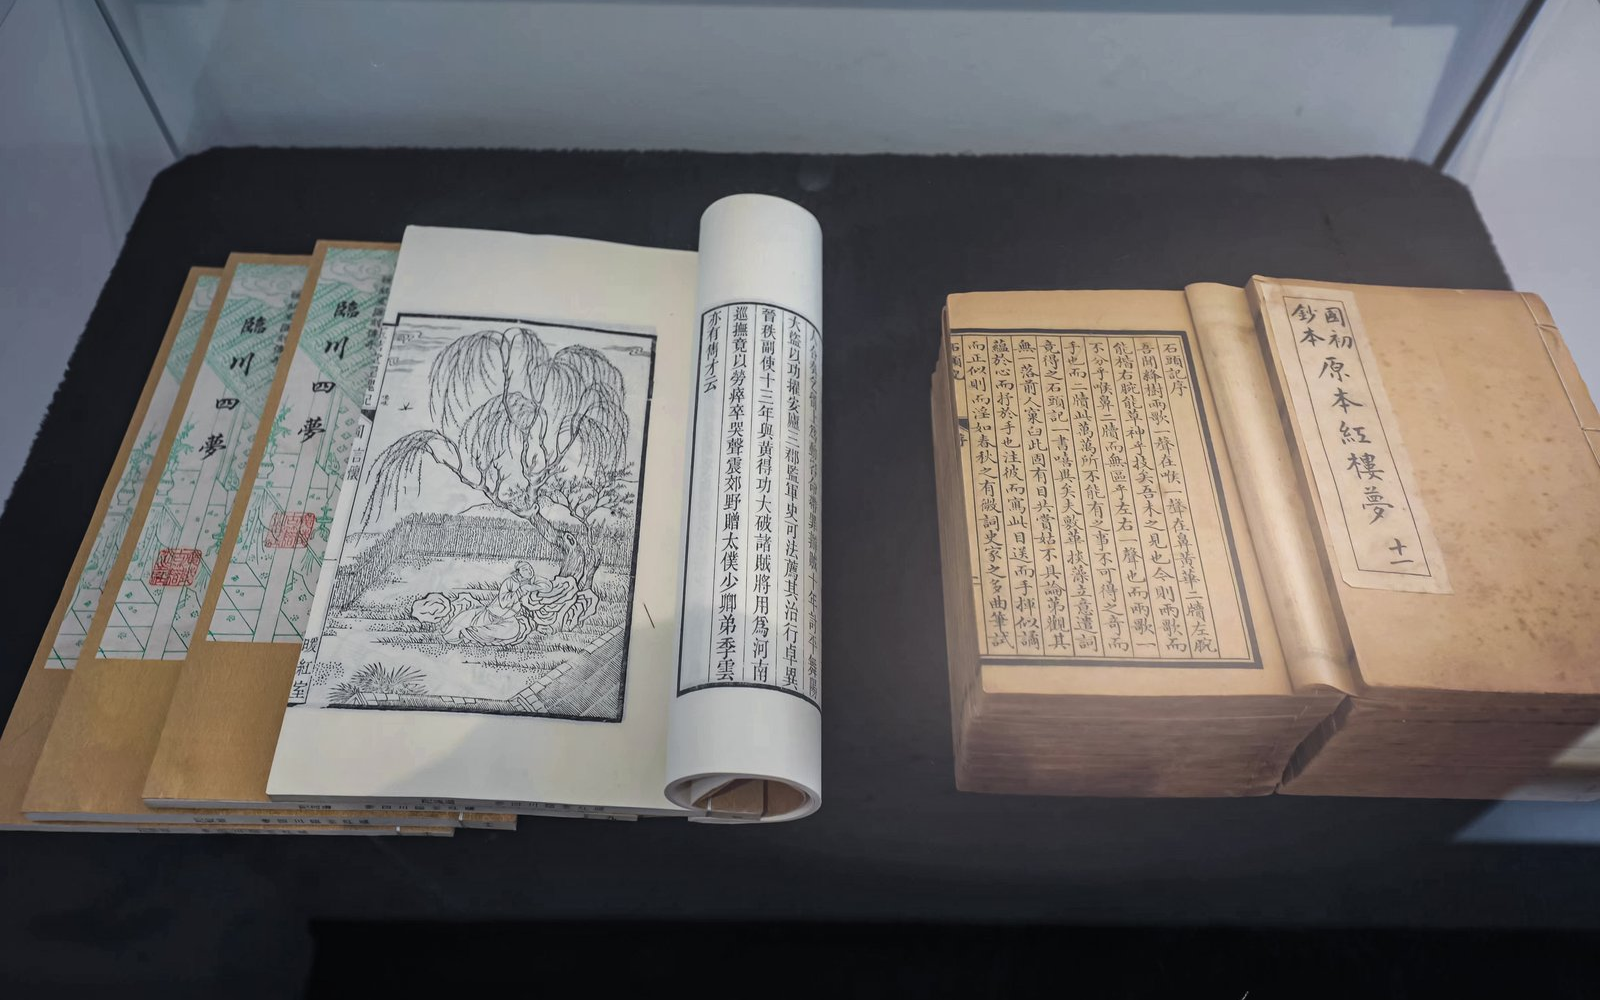 臨川四夢
臨川四夢
暖紅室
大盜以功擢安廬三郡監軍史可法薦其治行卓異
晉秩副使十三年與黃得功大破諸賊將用爲河南
巡撫竟以勞瘁卒哭聲震郊野贈太僕少卿弟季雲
亦有雋才云
國初
鈔本
原本紅樓夢
十一
石頭記序
吾聞絳樹兩歌一聲在喉一聲在鼻黃華二牘左腕
能楷右腕能草神乎技矣吾未之見也今則兩歌而
不分乎喉鼻二牘而無區乎左右一聲也而兩歌一
手也而二牘此萬萬所不能有之事不可得之奇而
竟得之石頭記一書嘻異矣夫敷華掞藻立意遣詞
無一落前人窠臼此固有目共賞姑不具論第觀其
蘊於心而抒於手也注彼而寫此目送而手揮似譎
而正似則而淫如春秋之有微詞史家之多曲筆試